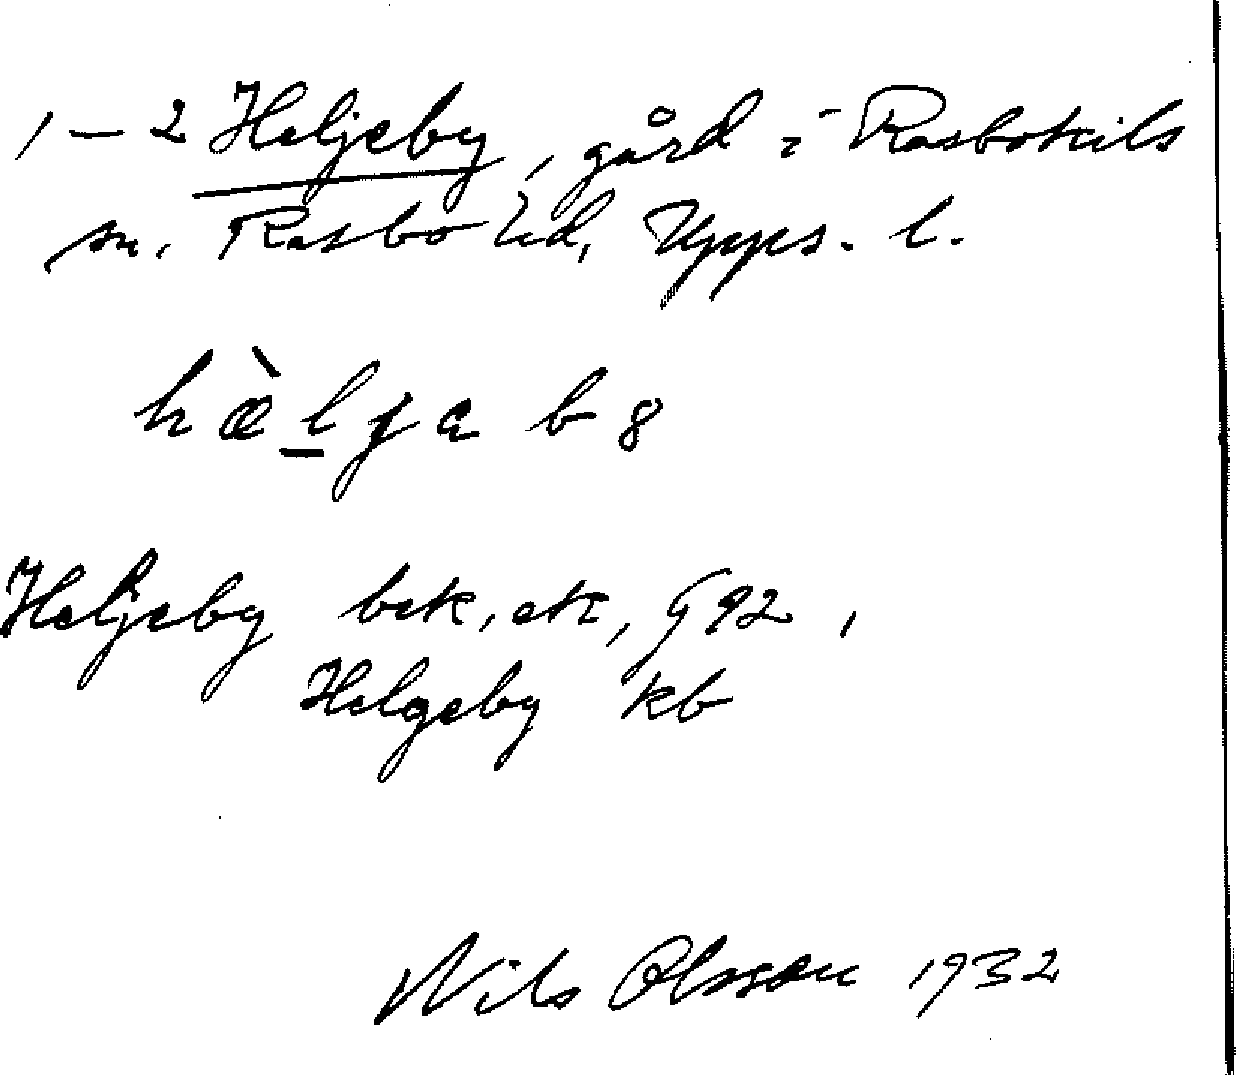 1-2 Heljeby, gård i Rasbokils
sn. Rasbo hd, Upps. l.
hæ̀l̠ja b8
Heljeby bek, ek, G 92,
Helgeby kb
Nils Olsson 1932